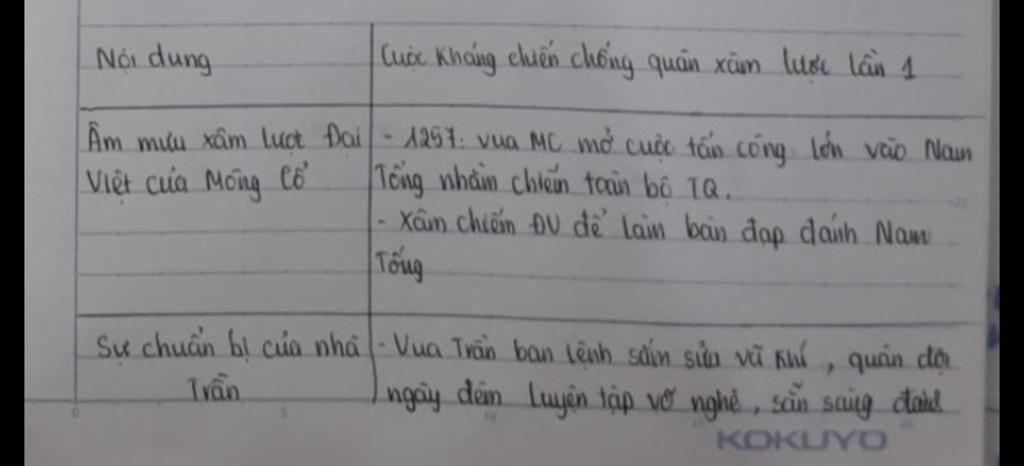 Nội dung
Cuộc kháng chiến chống quân xâm lược lần 1
Âm mưu xâm lược Đại
Việt của Mông Cổ
- 1257: vua MC mở cuộc tấn công lớn vào Nam
Tống nhằm chiến toàn bộ TQ.
- Xâm chiếm ĐV để làm bàn đạp đánh Nam
Tống
Sự chuẩn bị của nhà
Trần
- Vua Trần ban lệnh sắm sửa vũ khí, quân đội
ngày đêm luyện tập võ nghệ, sẵn sàng đánh
KOKUYO